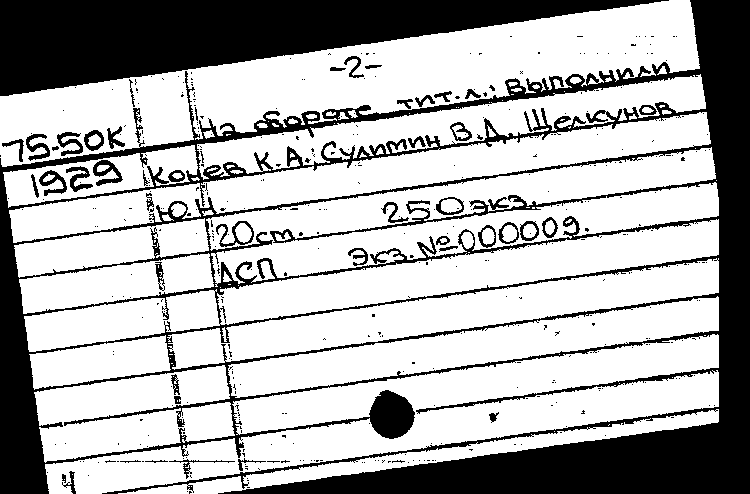 -2-
75-50К На обороте тит.л.: Выполнили
1929 Конев К.А., Сулимин В.Д., Щелкунов
Ю.Н.
20см. 250экз.
ДСП. Экз.№000009.
4